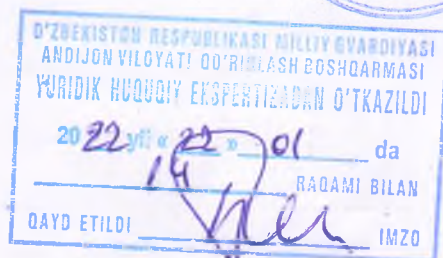 O'ZBEKISTON RESPUBLIKASI MILLIY GVARDIYASI
ANDIJON VILOYATI QO'RIQLASH BOSHQARMASI
YURIDIK HUQUQIY EKSPERTIZADAN O'TKAZILDI
2022 yil « 22 » 01 da
14 RAQAMI BILAN
QAYD ETILDI IMZO